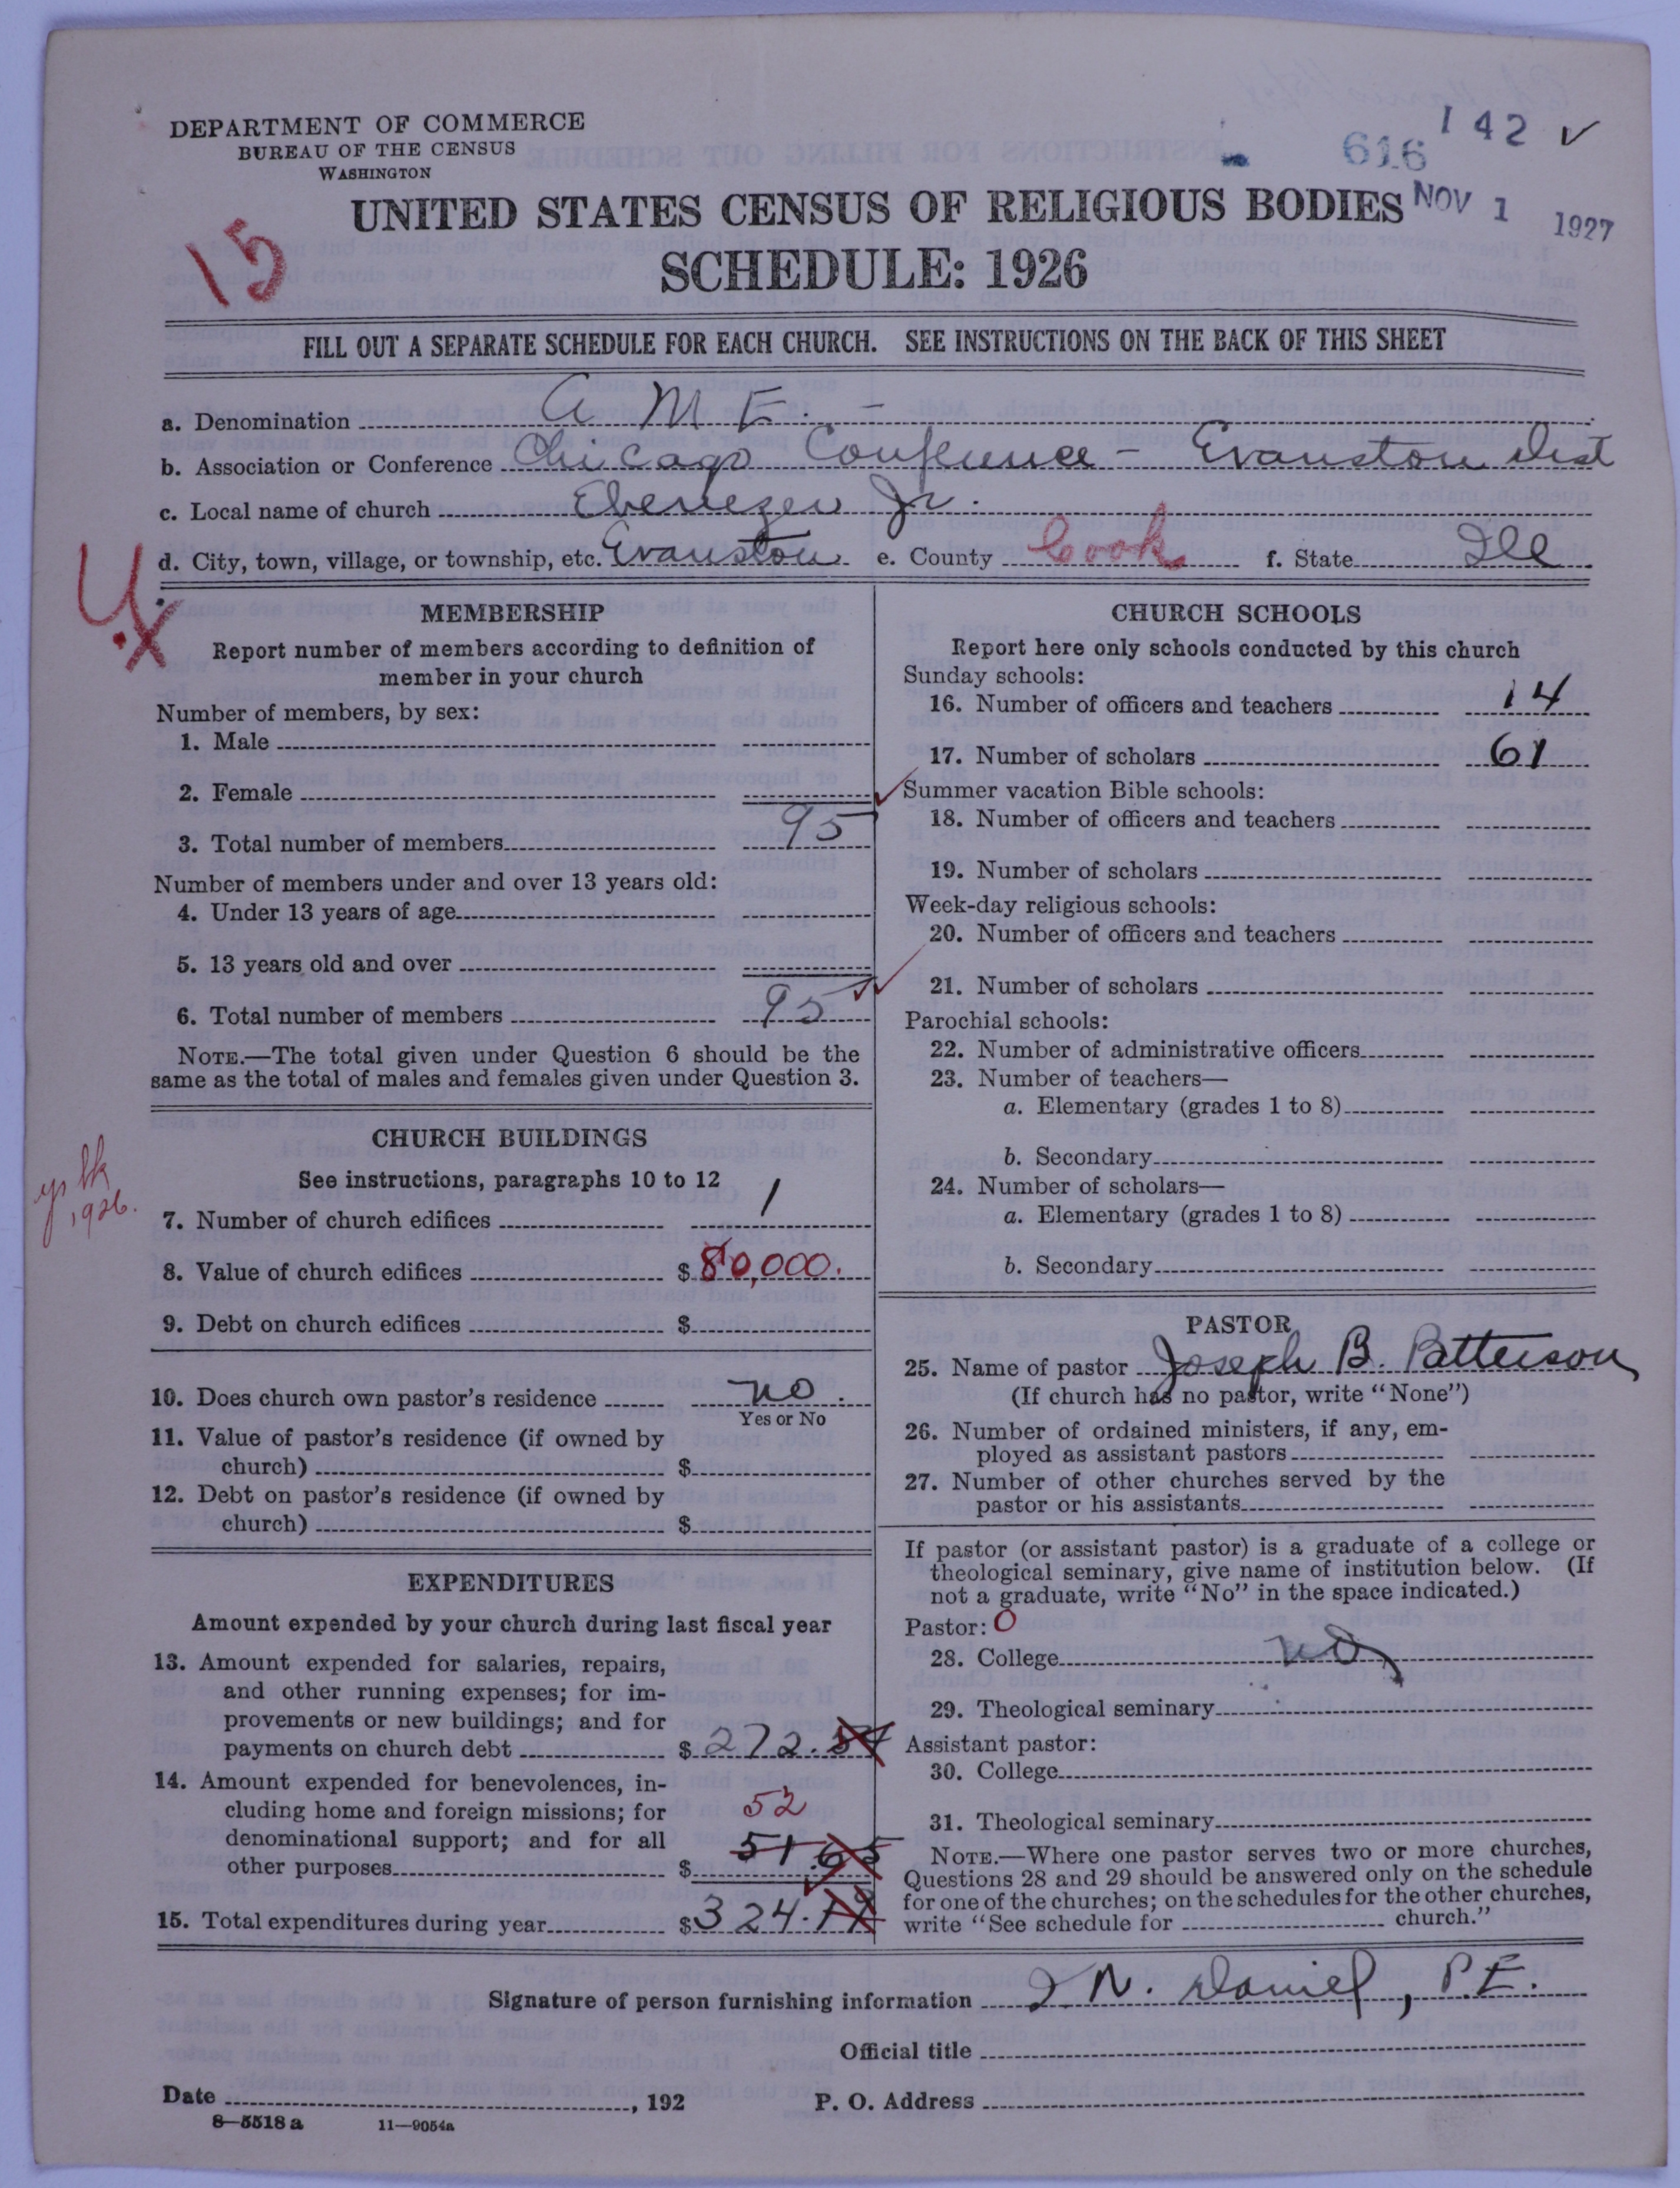 DEPARTMENT OF COMMERCE
BUREAU OF THE CENSUS
WASHINGTON
616
142 ✓
NOV 1 1927
15
UNITED STATES CENSUS OF RELIGIOUS BODIES
SCHEDULE: 1926
FILL OUT A SEPARATE SCHEDULE FOR EACH CHURCH. SEE INSTRUCTIONS ON THE BACK OF THIS SHEET
a. Denomination A. M. E. –
b. Association or Conference Chicago Conference – Evanston Dist
c. Local name of church Ebenezer Jr.
d. City, town, village, or township, etc. Evanston e. County Cook f. State Ill
MEMBERSHIP
Report number of members according to definition of
member in your church
Number of members, by sex:
1. Male
2. Female
3. Total number of members 95
Number of members under and over 13 years old:
4. Under 13 years of age
5. 13 years old and over
6. Total number of members 95
NOTE.—The total given under Question 6 should be the
same as the total of males and females given under Question 3.
CHURCH BUILDINGS
See instructions, paragraphs 10 to 12
1926.
7. Number of church edifices 1
8. Value of church edifices $ 80,000.
9. Debt on church edifices $
10. Does church own pastor's residence no.
Yes or No
11. Value of pastor's residence (if owned by
church) $
12. Debt on pastor's residence (if owned by
church) $
EXPENDITURES
Amount expended by your church during last fiscal year
13. Amount expended for salaries, repairs,
and other running expenses; for im-
provements or new buildings; and for
payments on church debt $ 272.54
14. Amount expended for benevolences, in-
cluding home and foreign missions; for 52
denominational support; and for all 51.65
other purposes $
15. Total expenditures during year $ 324.19
CHURCH SCHOOLS
Report here only schools conducted by this church
Sunday schools:
16. Number of officers and teachers 14
17. Number of scholars 61
Summer vacation Bible schools:
18. Number of officers and teachers
19. Number of scholars
Week-day religious schools:
20. Number of officers and teachers
21. Number of scholars
Parochial schools:
22. Number of administrative officers
23. Number of teachers—
a. Elementary (grades 1 to 8)
b. Secondary
24. Number of scholars—
a. Elementary (grades 1 to 8)
b. Secondary
PASTOR
25. Name of pastor Joseph B. Patterson
(If church has no pastor, write "None")
26. Number of ordained ministers, if any, em-
ployed as assistant pastors
27. Number of other churches served by the
pastor or his assistants
If pastor (or assistant pastor) is a graduate of a college or
theological seminary, give name of institution below. (If
not a graduate, write "No" in the space indicated.)
Pastor: O
28. College no
29. Theological seminary
Assistant pastor:
30. College
31. Theological seminary
NOTE.—Where one pastor serves two or more churches,
Questions 28 and 29 should be answered only on the schedule
for one of the churches; on the schedules for the other churches,
write "See schedule for church."
Signature of person furnishing information I. N. Daniel, P.E.
Official title
Date , 192 P. O. Address
8—5518 a 11—9054a